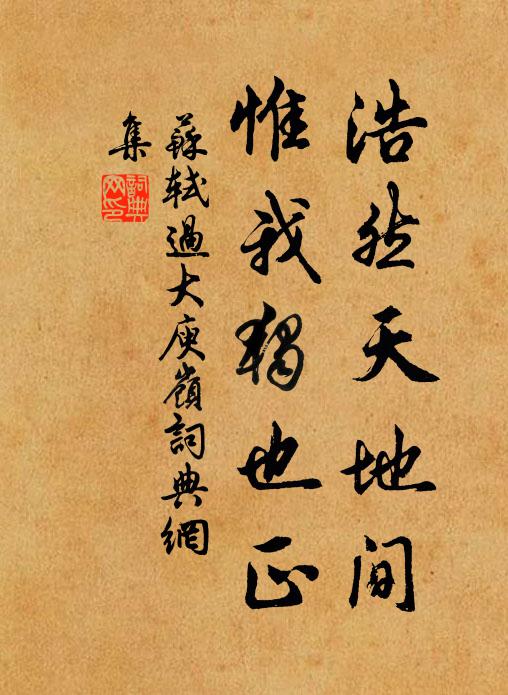 浩然天地間
惟我獨也正
蘇軾過大庾嶺詞典網
集
詞典
网印